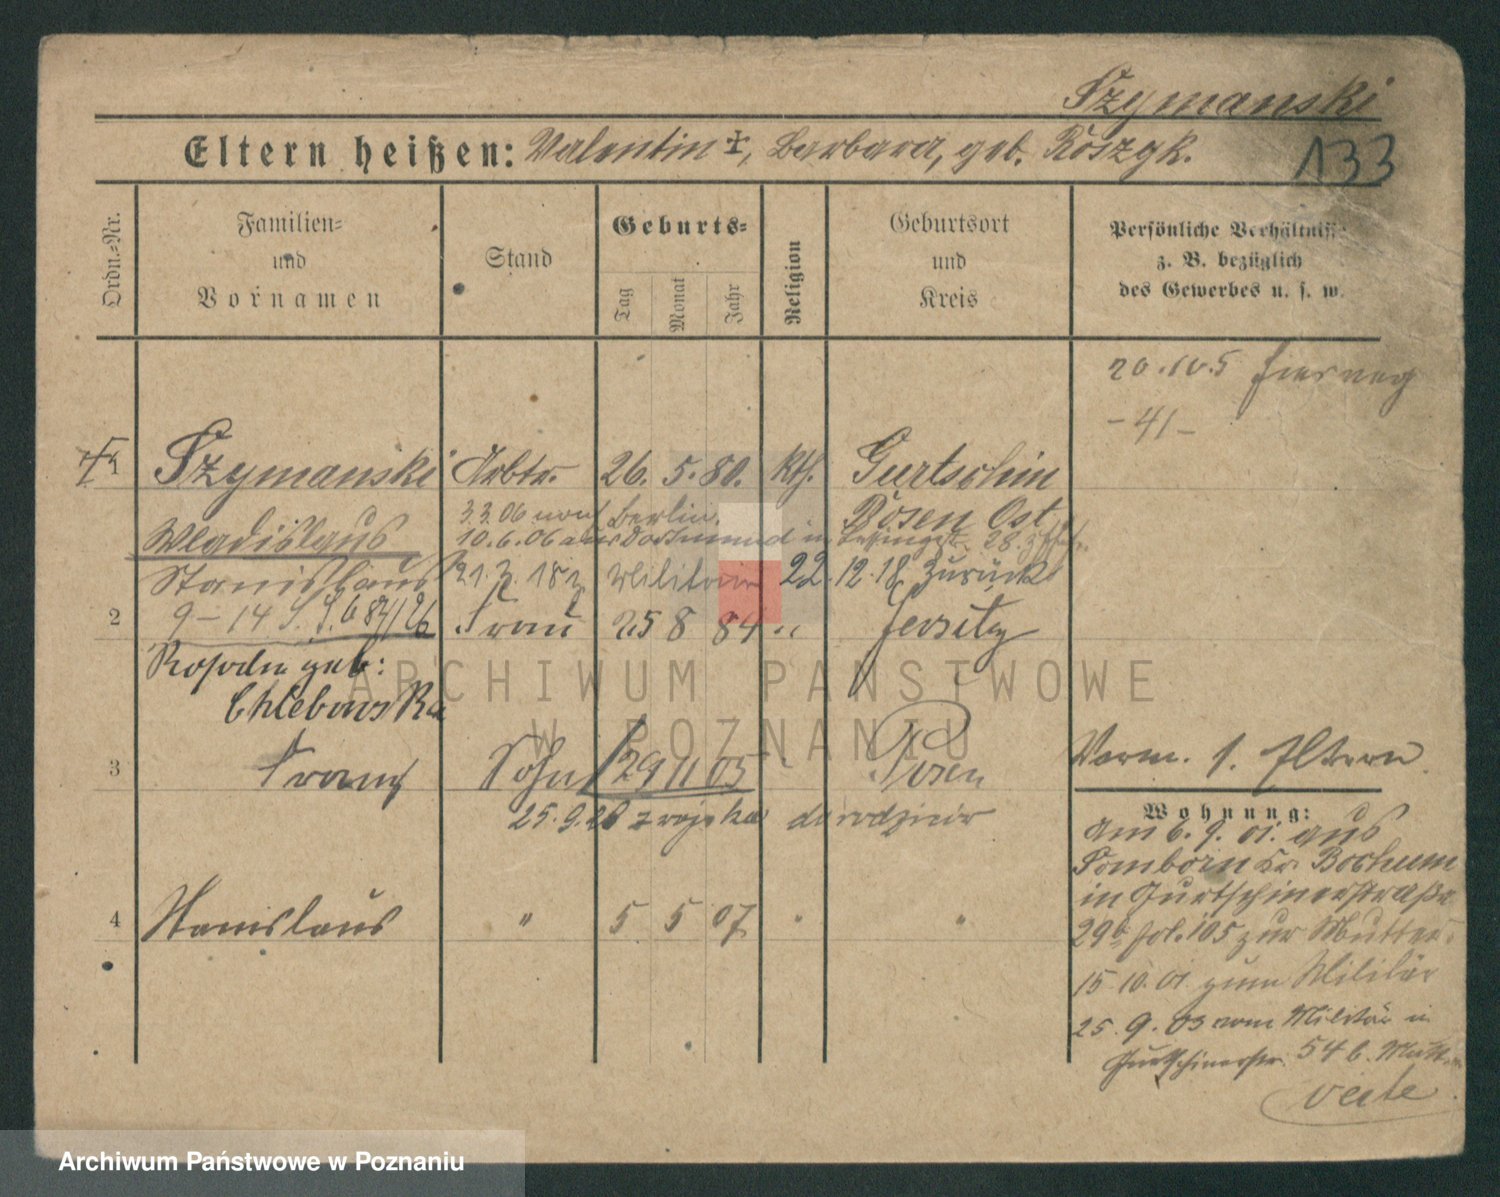 Szymanski
Eltern heißen: Valentin ✝, Barbara, geb. Roszyk.
133
Ordn.-Nr.
Familien- und Vornamen
Stand
Geburts-
Tag Monat Jahr
Religion
Geburtsort und Kreis
Persönliche Verhältnisse
z. B. bezüglich
des Gewerbes u. s. w.
20.10.5
-41-
Szymanski Arbtr. 26. 5. 80. kth. Gurtschin
3.3.06 nach Berlin. Posen Ost
Wladislaus 10.6.06 aus Dortmund in 28.
Stanislaus Militair 22.12.18 zurück
9-14
2 Frau 25 8 84 " Jersitz
geb:
Chlebowska
3 Franz Sohn 29 11 05 Posen
Verm. s. Eltern
25.9.28
Wohnung:
Am 6.9.01. aus
Bochum
in Gurtschinerstraße
29b fol. 105 zur Mutter.
4 Stanislaus " 5 5 07 " "
15.10.01 zum Militär
25.9.03 vom Militär in
Gurtschinerstr. 54 b. Mutt
verte
ARCHIWUM PAŃSTWOWE
W POZNANIU
Archiwum Państwowe w Poznaniu